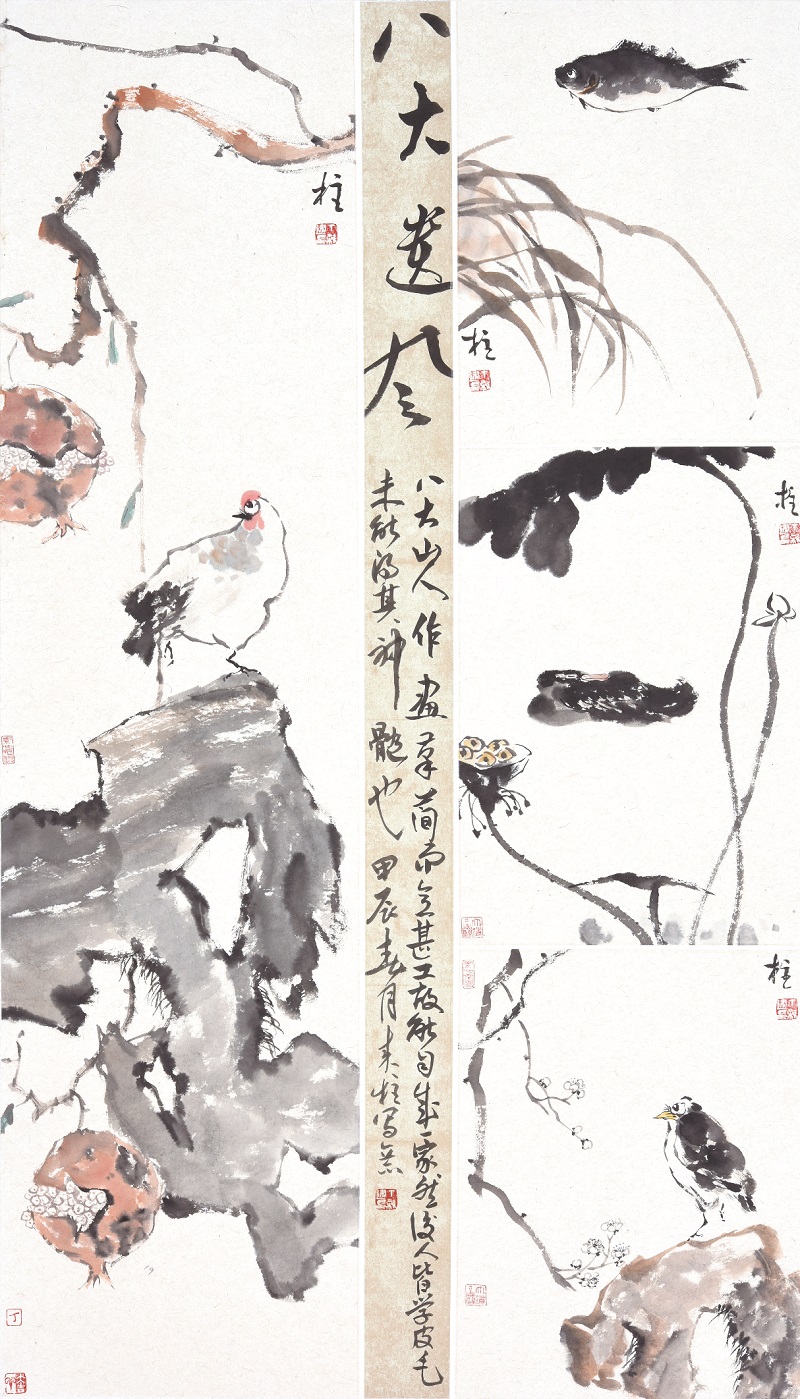 八大遗风
八大山人作画笔简而意甚工故能自成一家然后人皆学皮毛
未能得其神髓也甲辰春月来柱写意
柱
柱
柱
柱
丁